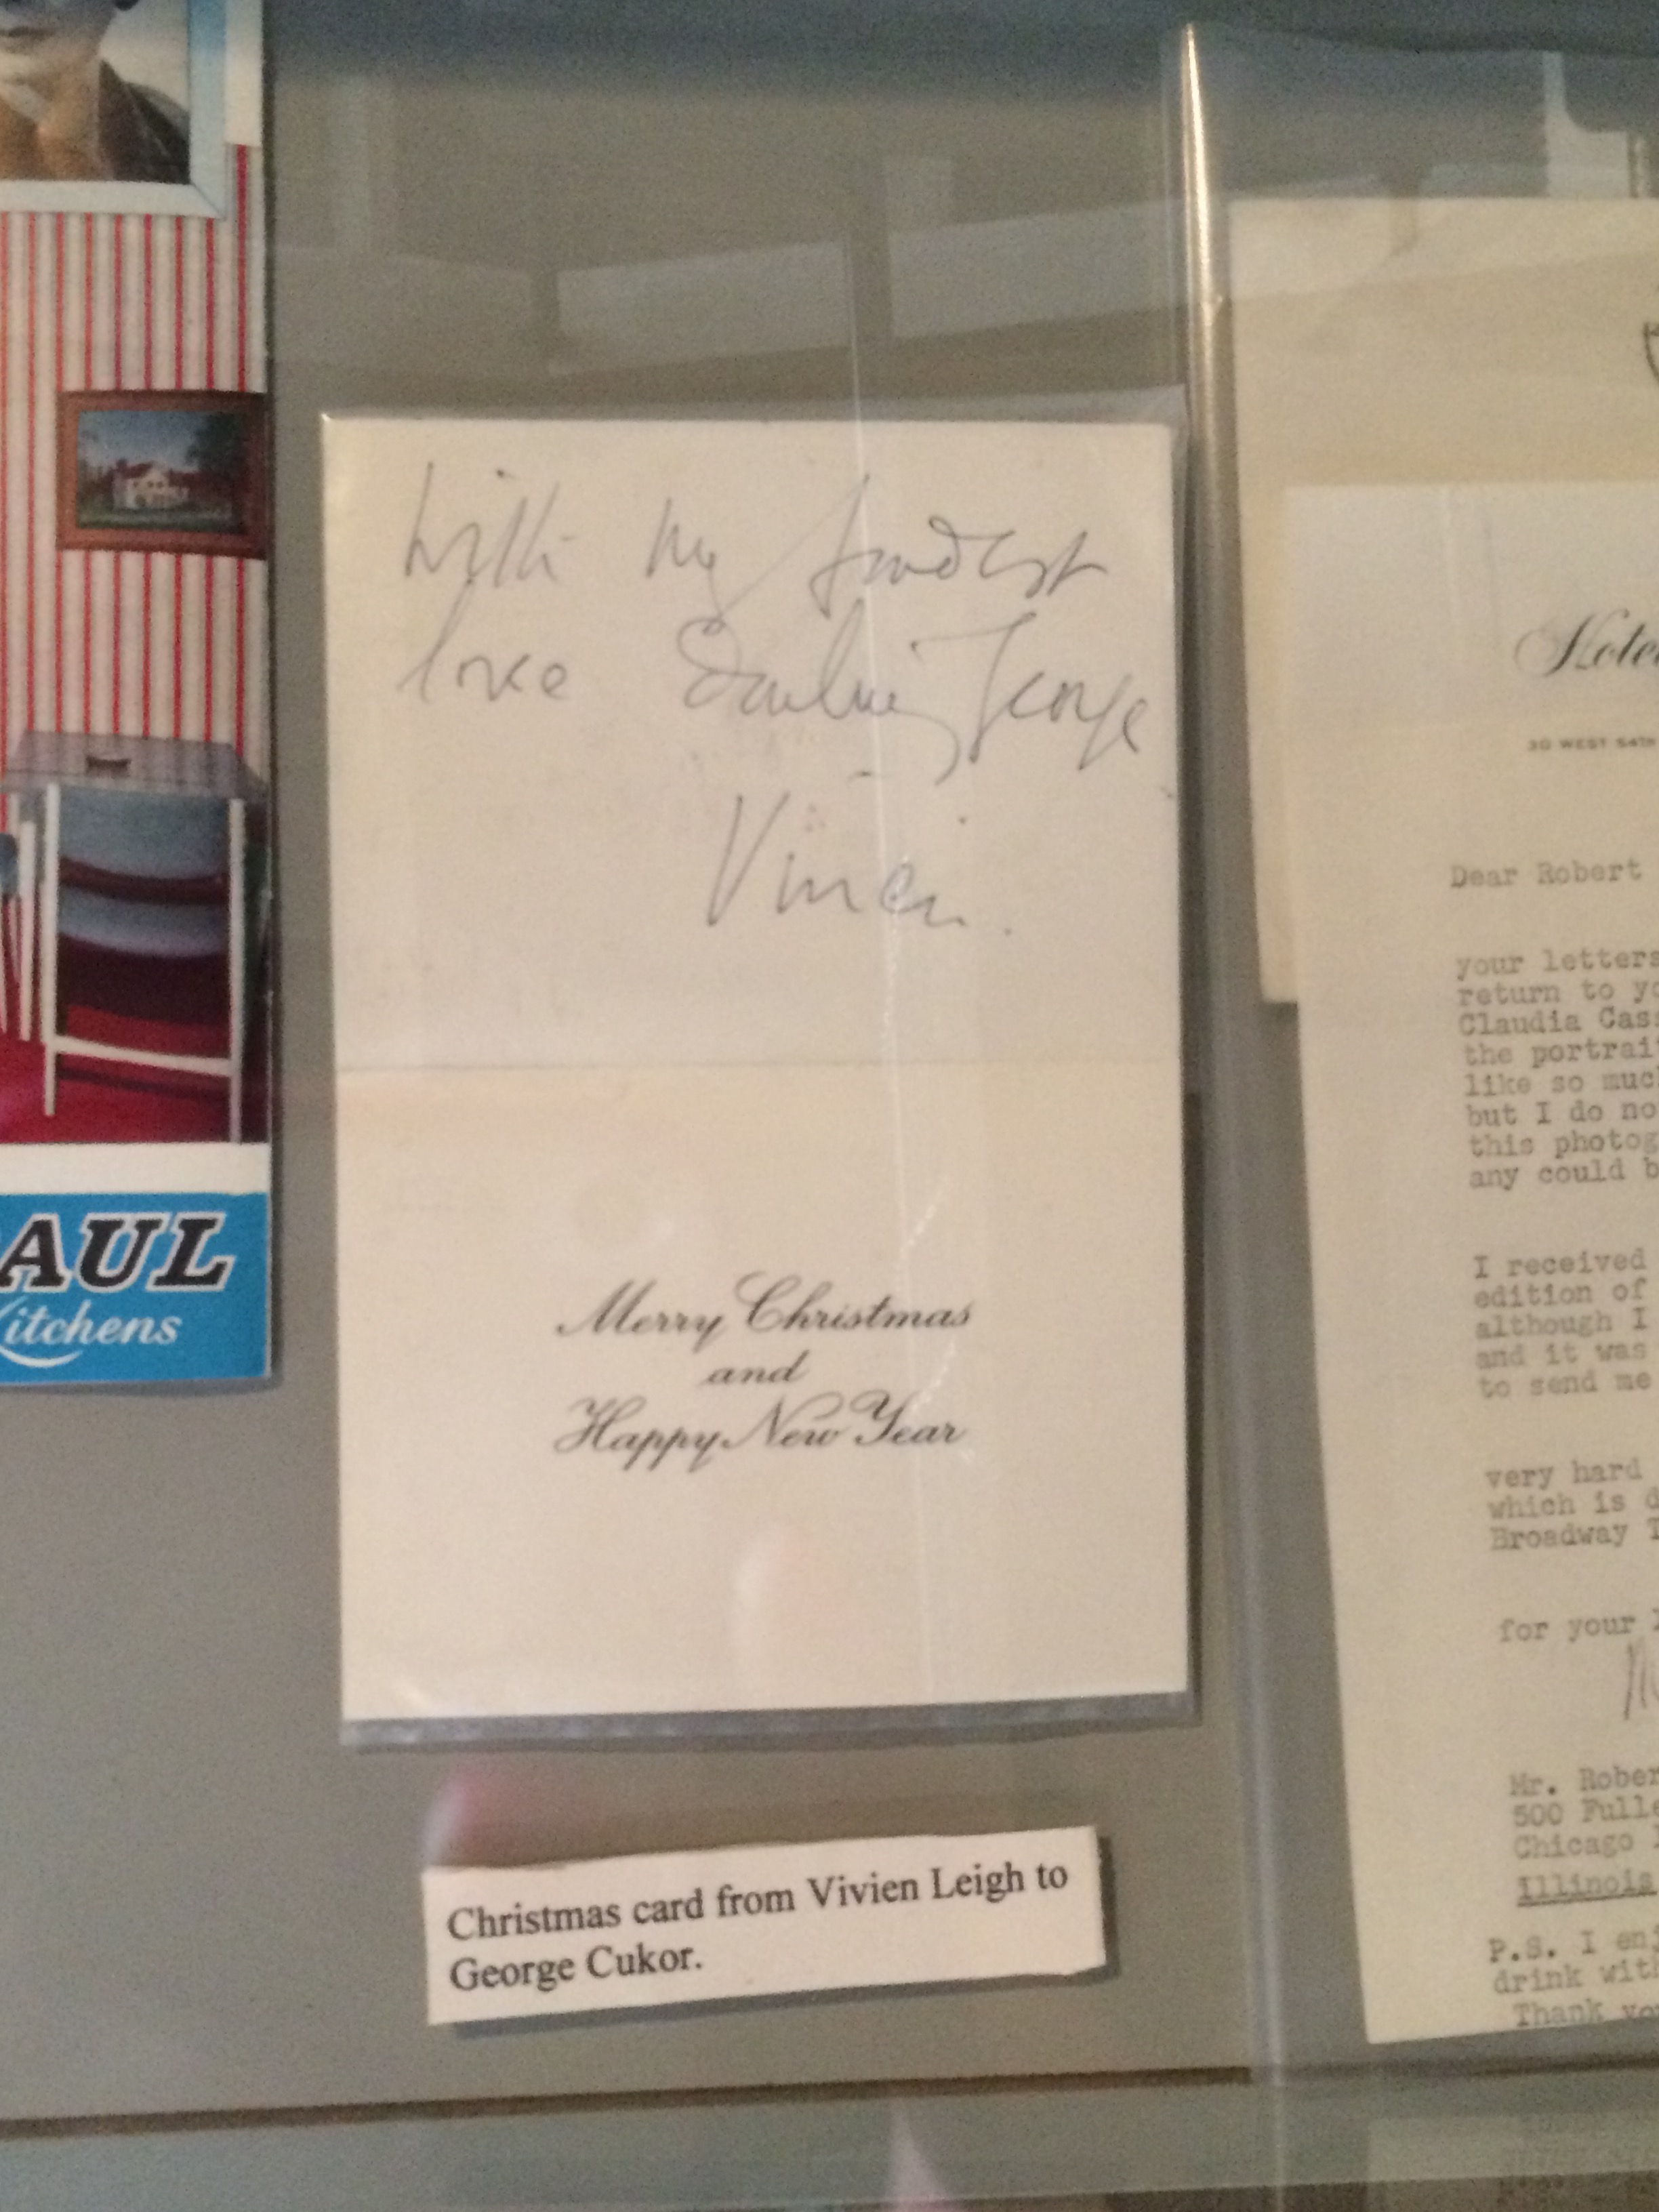 With my fondest
love Darling George
Vivien.
Merry Christmas
and
Happy New Year
Christmas card from Vivien Leigh to
George Cukor.
AUL
Kitchens
30 WEST 54TH
Dear Robert
your letters
return to
Claudia
the
like so
but I do
this
any could
I received
edition of
although I
and it was
to send me
very hard
which is
Broadway
for your
Mr.
500
Chicago
Illinois
P.S. I
drink
Thank